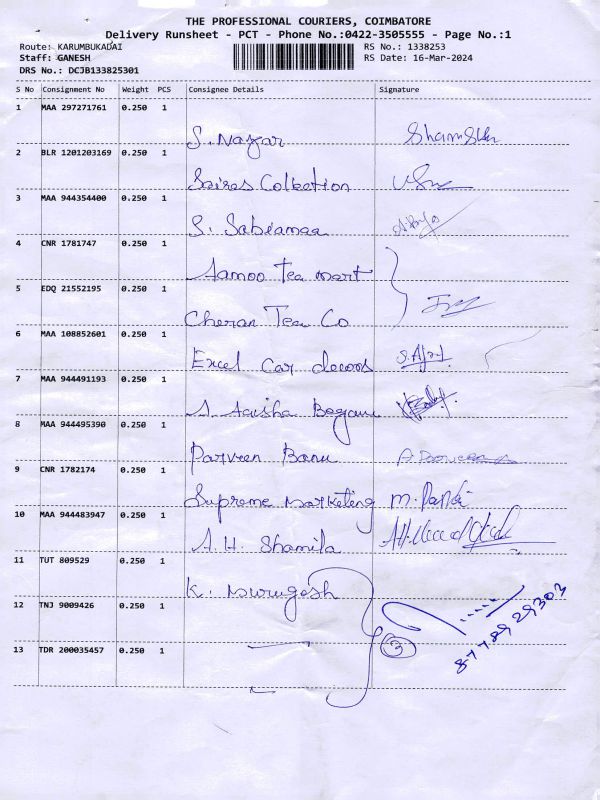 THE PROFESSIONAL COURIERS, COIMBATORE
Delivery Runsheet - PCT - Phone No.:0422-3505555 - Page No.:1
Route: KARUMBUKADAI RS No.: 1338253
Staff: GANESH RS Date: 16-Mar-2024
DRS No.: DCJB133825301
S No Consignment No Weight PCS Consignee Details Signature
1 MAA 297271761 0.250 1
S. Nazar
2 BLR 1201203169 0.250 1
Collection
3 MAA 944354400 0.250 1
S.
4 CNR 1781747 0.250 1
Aamoo Tea mart
5 EDQ 21552195 0.250 1
Cheran Tea Co
6 MAA 108852601 0.250 1
Excel Car decors
7 MAA 944491193 0.250 1
Begam
8 MAA 944495390 0.250 1
Parveen Banu
9 CNR 1782174 0.250 1
Supreme marketing M.
10 MAA 944483947 0.250 1
A. H. Shamila
11 TUT 809529 0.250 1
K. Murugesh
12 TNJ 9009426 0.250 1
13 TDR 200035457 0.250 1
3
8778929303